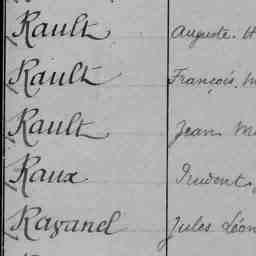 Rault Auguste. H
Rault François. M
Rault Jean M
Raux Prudent
Ravanel Jules Léon